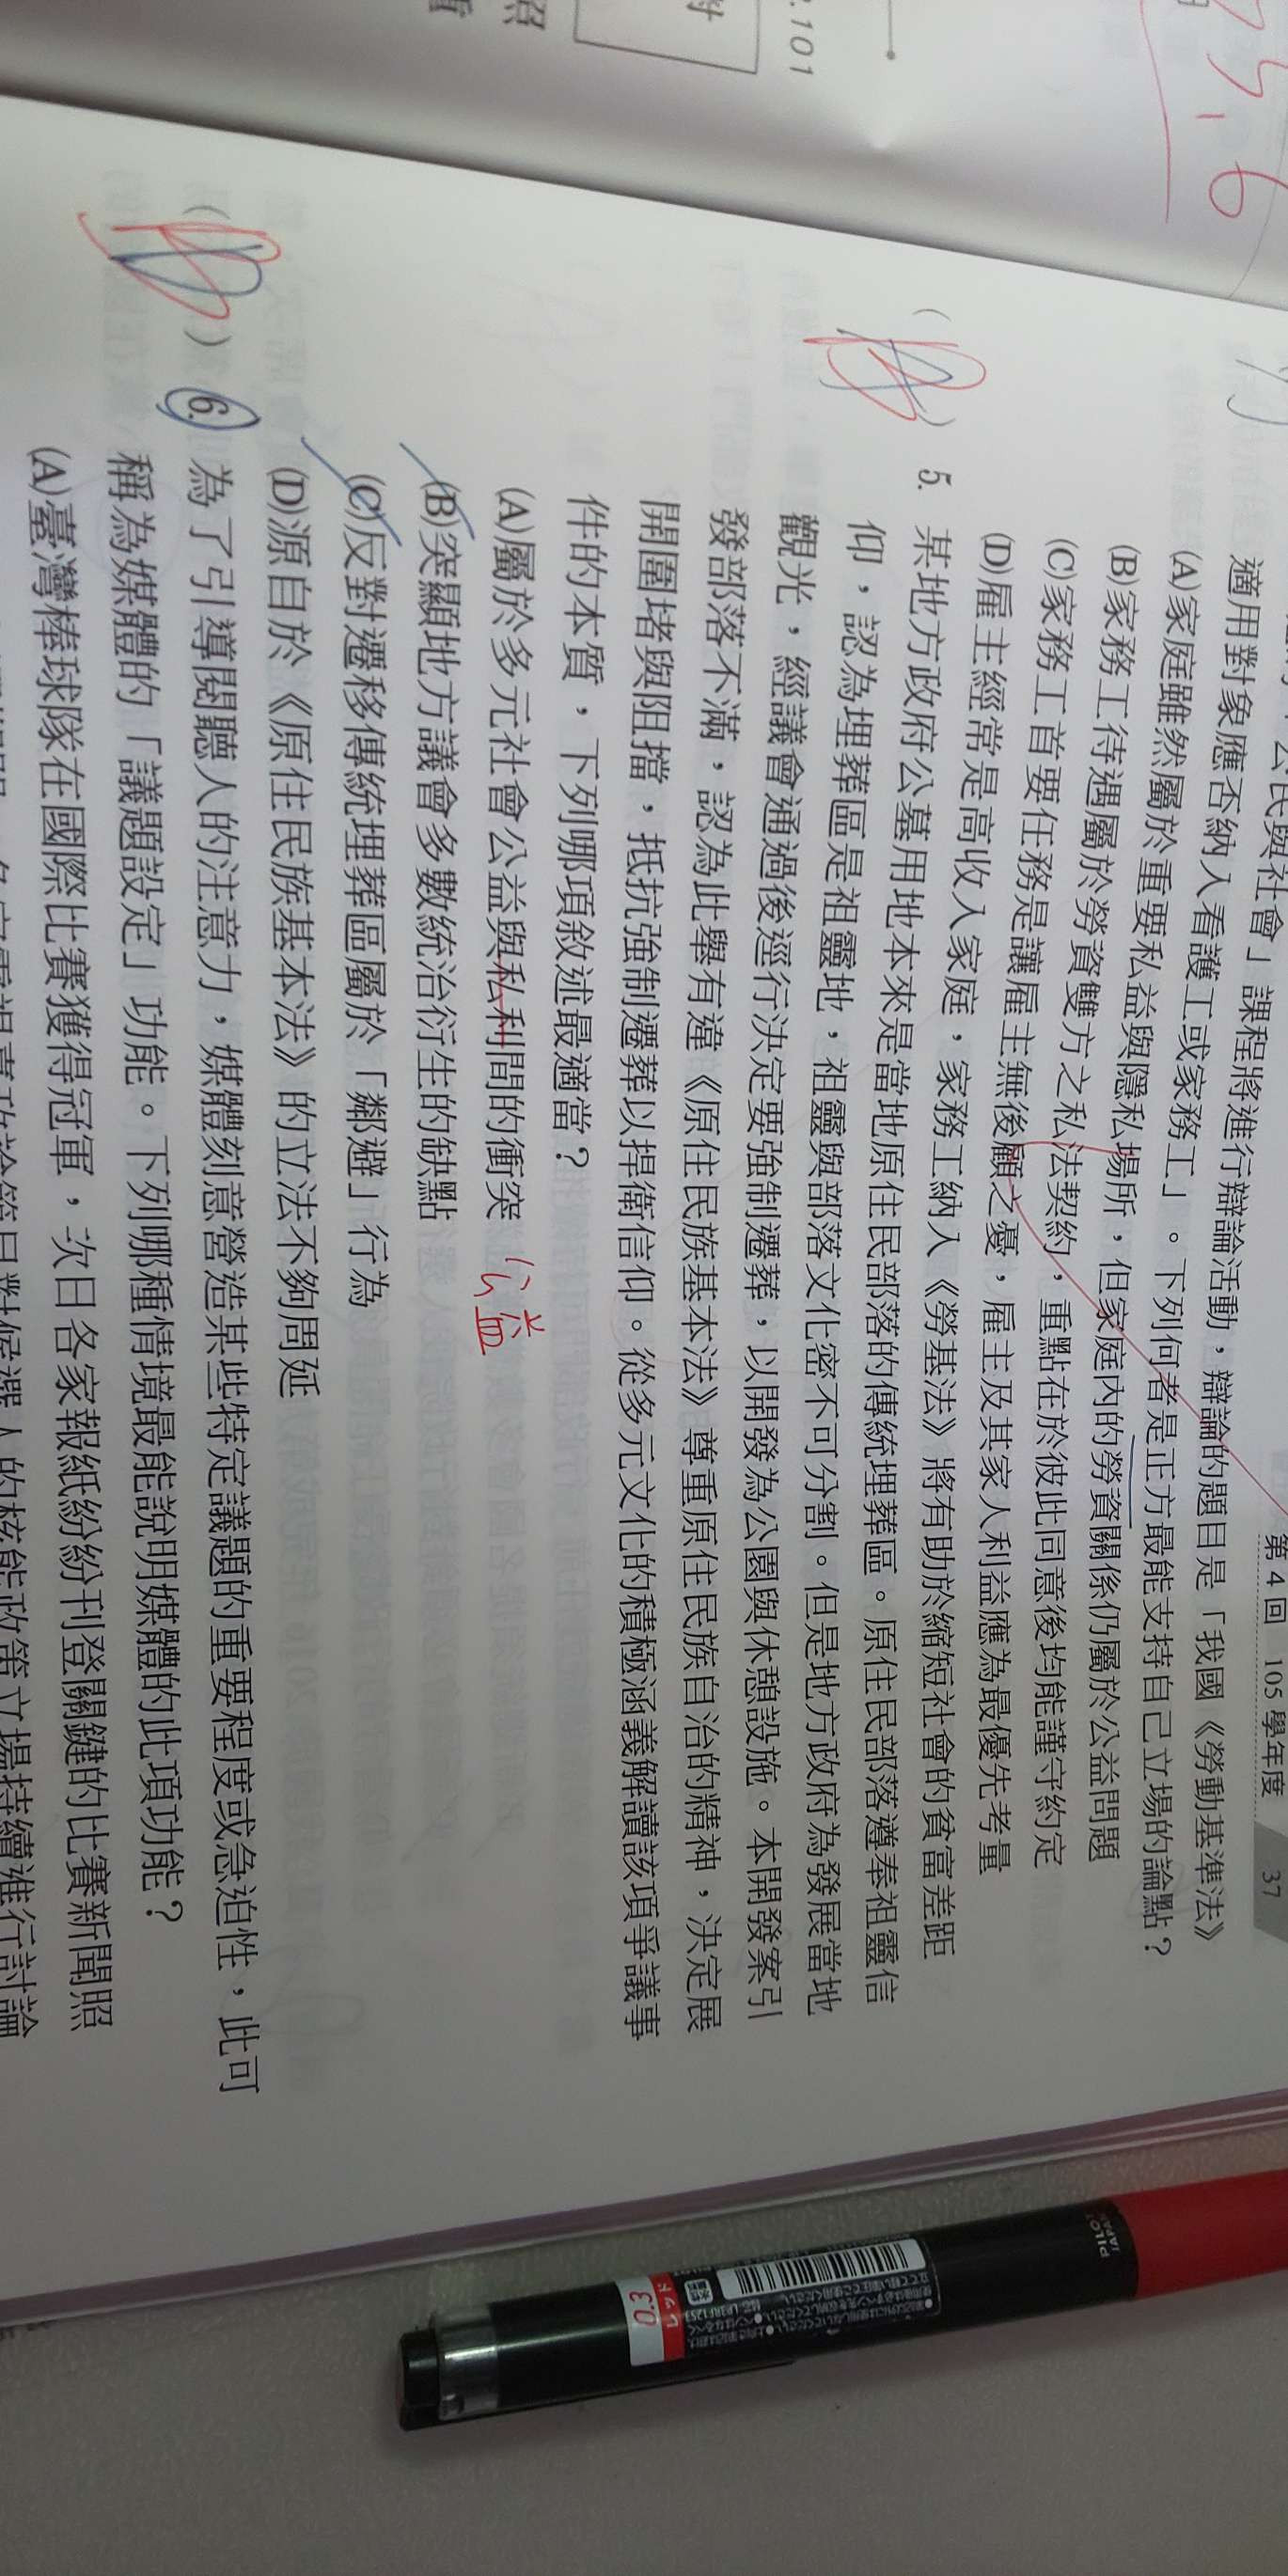 第4回 105學年度 37
公民與社會」課程將進行辯論活動,辯論的題目是「我國《勞動基準法》
適用對象應否納入看護工或家務工」。下列何者是正方最能支持自己立場的論點?
(A)家庭雖然屬於重要私益與隱私場所,但家庭內的勞資關係仍屬於公益問題
(B)家務工待遇屬於勞資雙方之私法契約,重點在於彼此同意後均能謹守約定
(C)家務工首要任務是讓雇主無後顧之憂,雇主及其家人利益應為最優先考量
(D)雇主經常是高收入家庭,家務工納入《勞基法》將有助於縮短社會的貧富差距
5. 某地方政府公墓用地本來是當地原住民部落的傳統埋葬區。原住民部落遵奉祖靈信
仰,認為埋葬區是祖靈地,祖靈與部落文化密不可分割。但是地方政府為發展當地
觀光,經議會通過後逕行決定要強制遷葬,以開發為公園與休憩設施。本開發案引
發部落不滿,認為此舉有違《原住民族基本法》尊重原住民族自治的精神,決定展
開圍堵與阻擋,抵抗強制遷葬以捍衛信仰。從多元文化的積極涵義解讀該項爭議事
件的本質,下列哪項敘述最適當?
(A)屬於多元社會公益與私利間的衝突 公益
(B)突顯地方議會多數統治衍生的缺點
(C)反對遷移傳統埋葬區屬於「鄰避」行為
(D)源自於《原住民族基本法》的立法不夠周延
6. 為了引導閱聽人的注意力,媒體刻意營造某些特定議題的重要程度或急迫性,此可
稱為媒體的「議題設定」功能。下列哪種情境最能說明媒體的此項功能?
(A)臺灣棒球隊在國際比賽獲得冠軍,次日各家報紙紛紛刊登關鍵的比賽新聞照
對候選人的核能政策立場持續進行討論
.101
照
PILOT
JAPAN
レッド
0.3